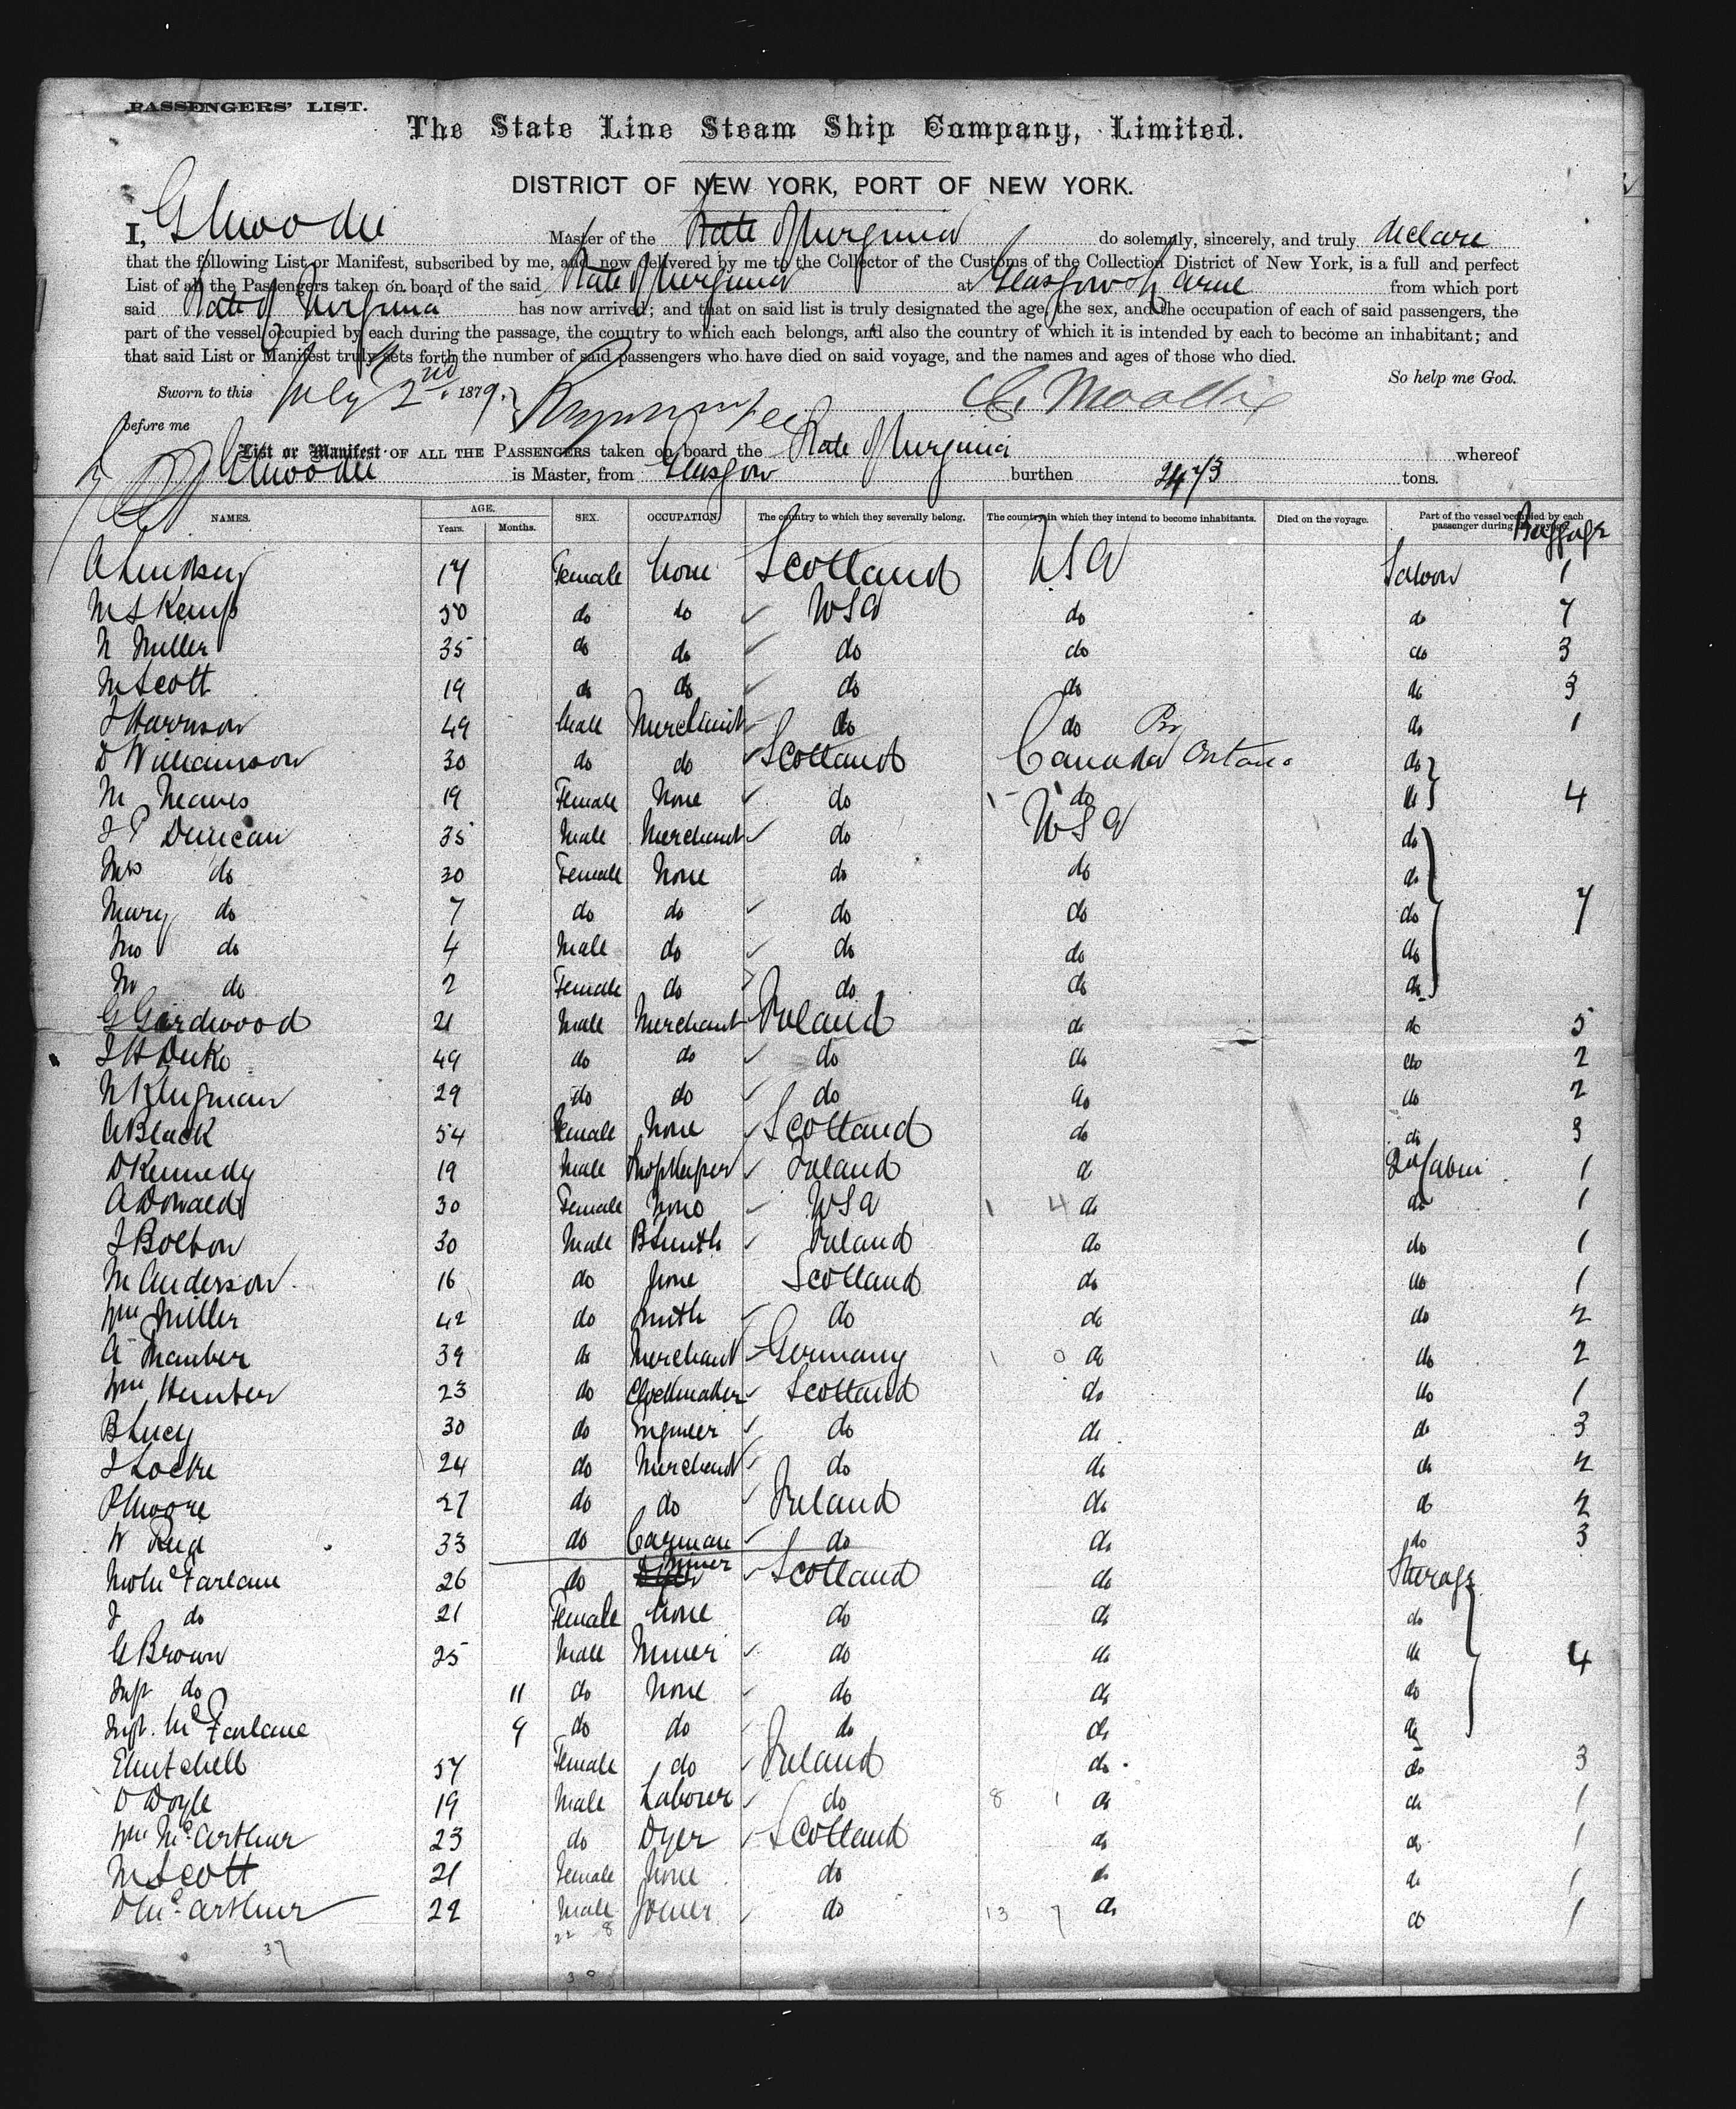 PASSENGERS' LIST.
The State Line Steam Ship Company, Limited.
DISTRICT OF NEW YORK, PORT OF NEW YORK.
I, G Moodie Master of the State of Virginia do solemnly, sincerely, and truly declare
that the following List or Manifest, subscribed by me, and now delivered by me to the Collector of the Customs of the Collection District of New York, is a full and perfect
List of all the Passengers taken on board of the said State of Virginia at Glasgow & Larne from which port
said State of Virginia has now arrived; and that on said list is truly designated the age, the sex, and the occupation of each of said passengers, the
part of the vessel occupied by each during the passage, the country to which each belongs, and also the country of which it is intended by each to become an inhabitant; and
that said List or Manifest truly sets forth the number of said passengers who have died on said voyage, and the names and ages of those who died.
So help me God.
Sworn to this July 2nd 1879. G. Moodie
before me
List or Manifest OF ALL THE PASSENGERS taken on board the State of Virginia whereof
G Moodie is Master, from Glasgow burthen 2473 tons.
NAMES. AGE. Years. Months. SEX. OCCUPATION. The country to which they severally belong. The country in which they intend to become inhabitants. Died on the voyage. Part of the vessel occupied by each passenger during the voyage. Baggage
A Lindsay 17 Female None Scotland USA Saloon 1
M S Kemp 50 do do USA do do 7
N Miller 35 do do do do do 3
M Scott 19 do do do do do 3
J Harrison 49 Male Merchant do do do 1
D Williamson 30 do do Scotland Canada Ontario do
M Neaves 19 Female None do do do 4
J P Duncan 35 Male Merchant do USA do
Mrs do 30 Female None do do do
Mary do 7 do do do do do 7
Jno do 4 Male do do do do
M do 2 Female do do do do
G Girdwood 21 Male Merchant Ireland do do 5
J H Duke 49 do do do do do 2
N Klugman 29 do do do do do 2
A Black 54 Female None Scotland do do 3
D Kennedy 19 Male Shopkeeper Ireland do 2d Cabin 1
A Donald 30 Female None USA 1 4 do do 1
J Bolton 30 Male BSmith Ireland do do 1
M Anderson 16 do None Scotland do do 1
Wm Miller 42 do Smith do do do 2
A Mamber 39 do Merchant Germany 1 0 do do 2
Wm Hunter 23 do Clockmaker Scotland do do 1
B Lucy 30 do Engineer do do do 3
J Locke 24 do Merchant do do do 2
P Moore 27 do do Ireland do do 2
W Reid 33 do Carman do do do 3
Jno McFarlane 26 do Miner Scotland do Steerage
J do 21 Female None do do do
G Brown 25 Male Miner do do do 4
Inft do 11 do None do do do
Inft. McFarlane 9 do do do do do
E Mitchell 57 Female do Ireland do do 3
D Doyle 19 Male Labourer do 8 1 do do 1
Wm McArthur 23 do Dyer Scotland do do 1
M Scott 21 Female None do do do 1
D McArthur 22 Male Joiner do 13 7 do do 1
22 8
37